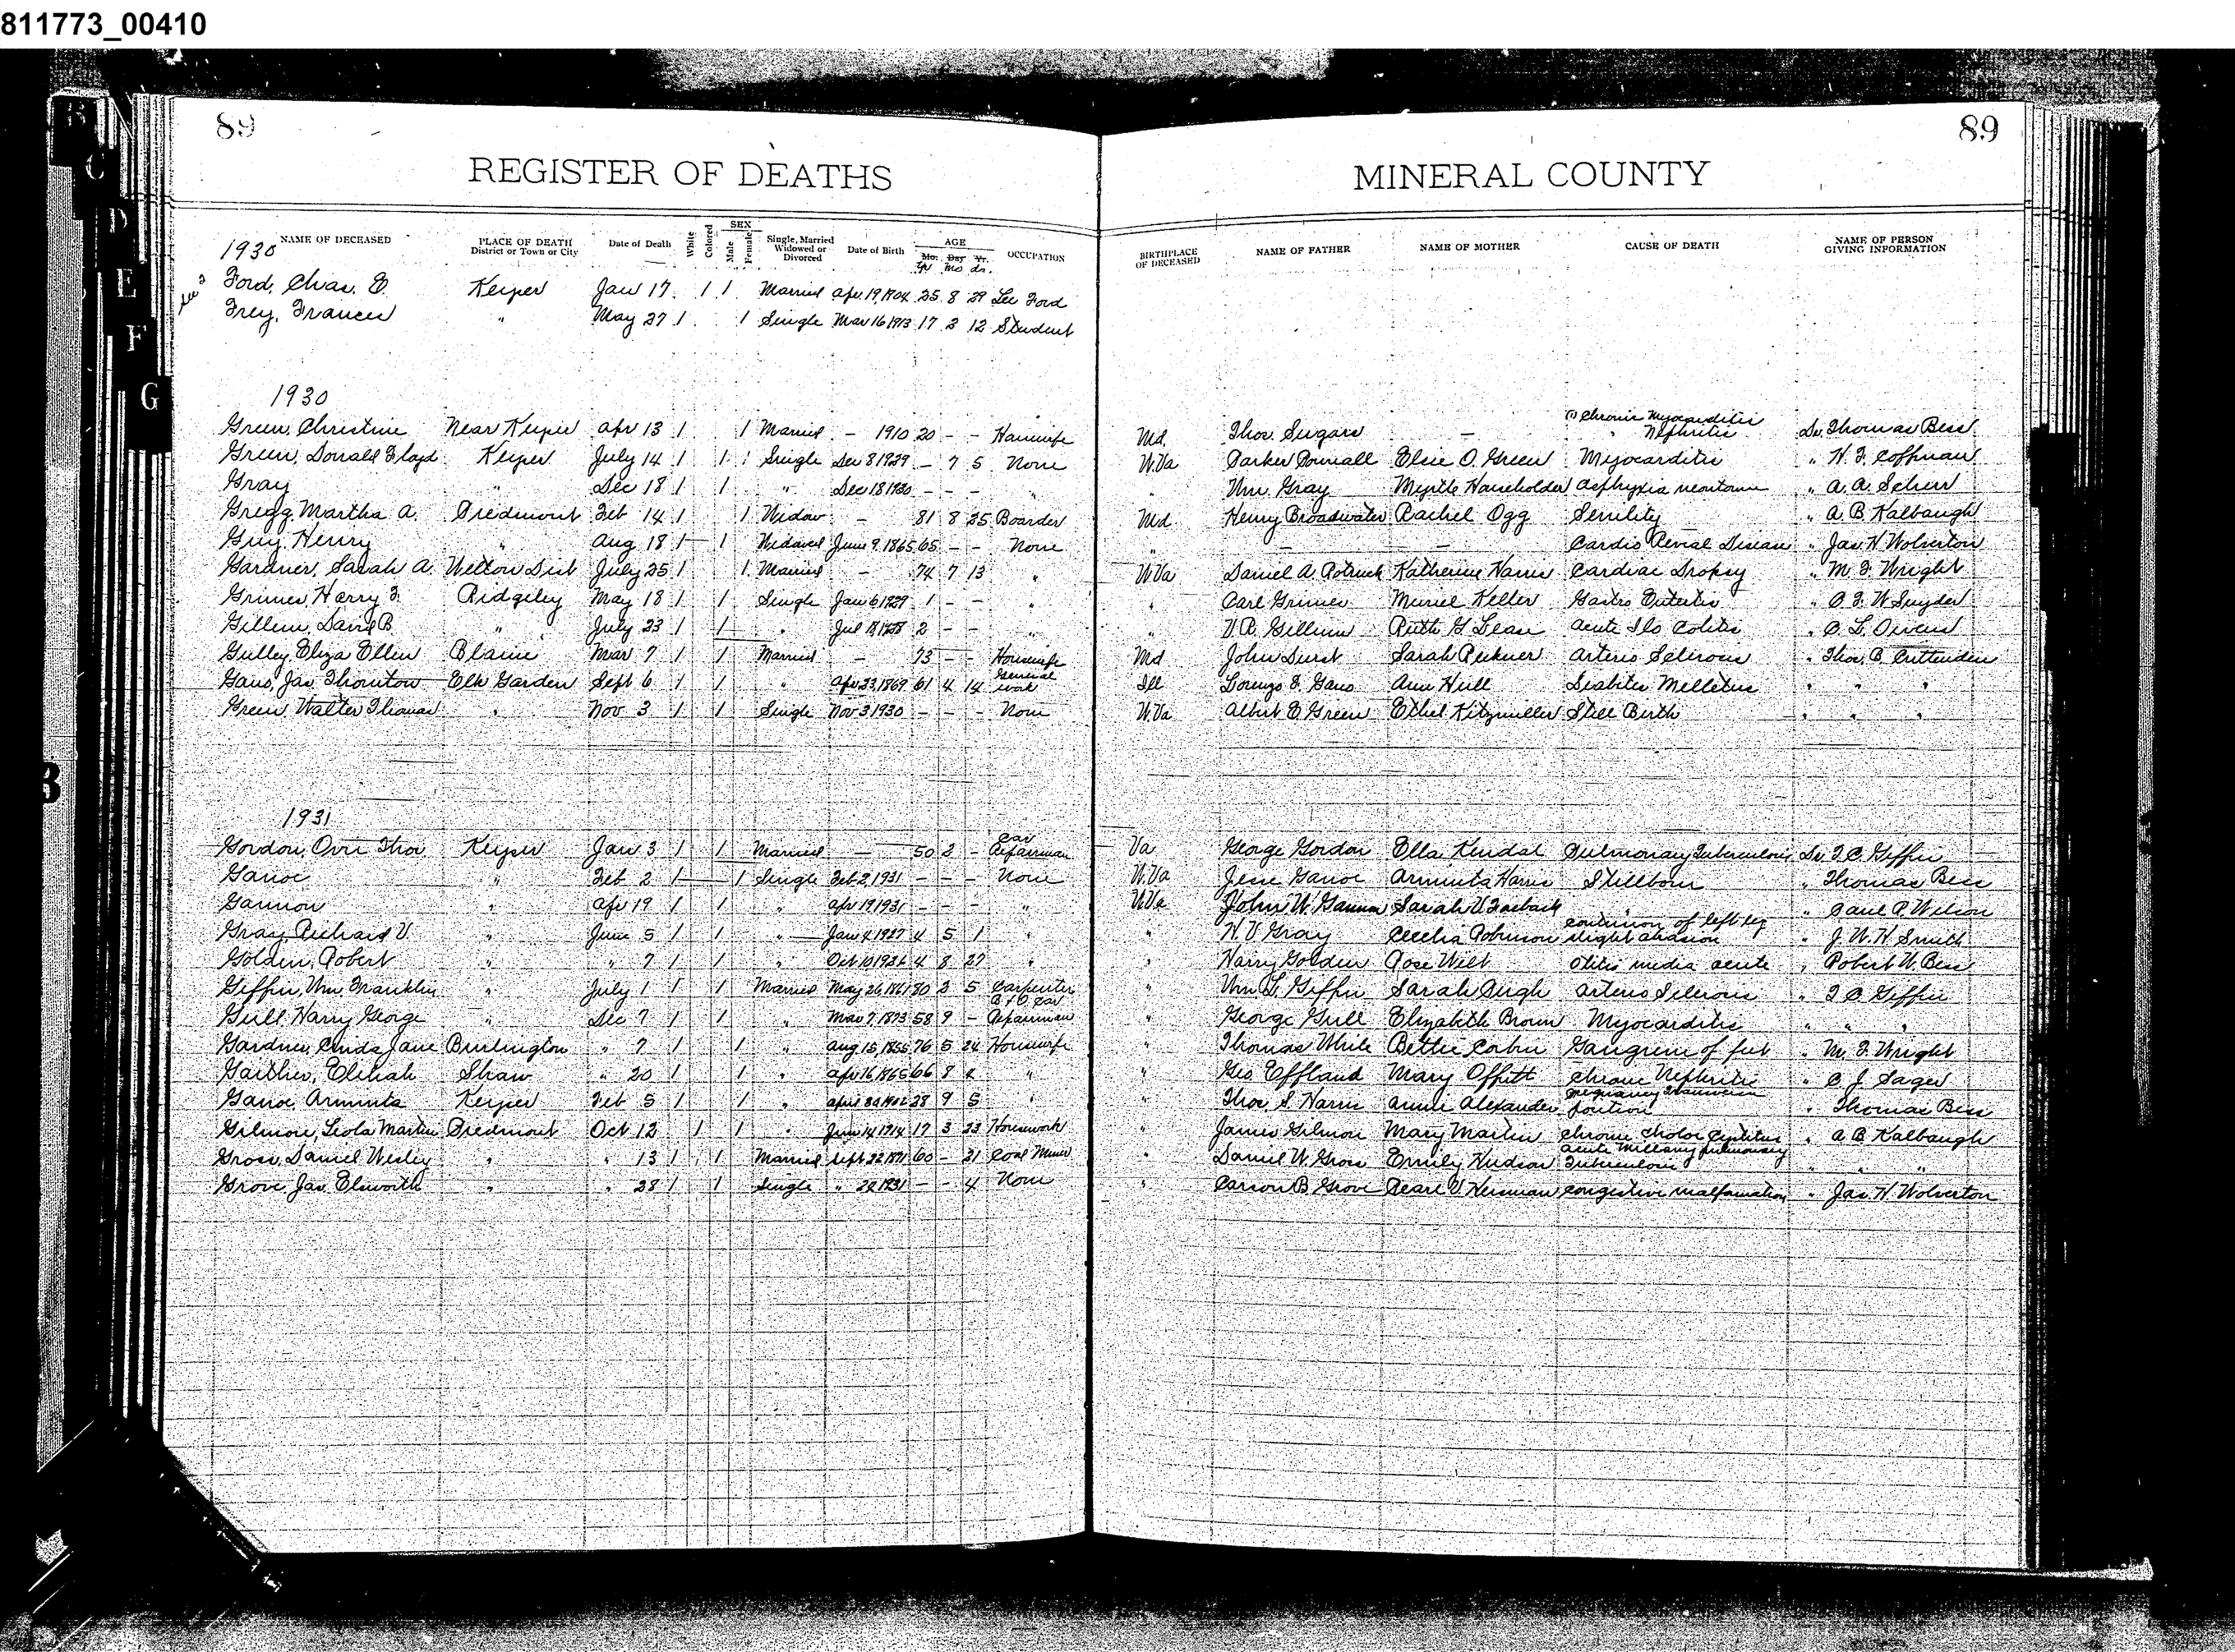 811773_00410
89
89
REGISTER OF DEATHS
MINERAL COUNTY
1930
NAME OF DECEASED PLACE OF DEATH District or Town or City Date of Death White Colored SEX Male Female Single, Married Widowed or Divorced Date of Birth AGE Mo. Day Yr. OCCUPATION BIRTHPLACE OF DECEASED NAME OF FATHER NAME OF MOTHER CAUSE OF DEATH NAME OF PERSON GIVING INFORMATION
Yr Mo ds.
Ford, Chas. E. Keyser Jan 17 1 1 Married Apr. 19, 1904 25 8 29 Lee Ford
Frey, Frances " May 27 1 1 Single Mar 16 1913 17 2 12 Student
1930
Green, Christine Near Keyser Apr 13 1 1 Married - 1910 20 - - Housewife Md. Thos. Sugars - (1) Chronic Myocarditis " Nephritis Dr. Thomas Bess
Green, Donald Floyd Keyser July 14 1 1 Single Dec 8 1929 - 7 5 None W.Va Parker Pownall Elsie O. Green Myocarditis " H. F. Coffman
Gray " Dec 18 1 1 " Dec 18 1930 - - - " " Wm. Gray Myrtle Householder Asphyxia " A. A. Scherr
Gregg Martha A. Piedmont Feb 14 1 1 Widow - 81 8 25 Boarder Md Henry Broadwater Rachel Ogg Senility " A. B. Kalbaugh
Guy, Henry " Aug 18 1 1 Widowed June 9, 1865 65 - - None " - - Cardio Renal Disease " Jas. H Wolverton
Gardner, Sarah A. Welton Dist July 25 1 1 Married - 74 7 13 " W.Va Daniel A. Katherine Harris Cardiac Dropsy " M. F. Wright
Grimes, Harry F. Ridgeley May 18 1 1 Single Jan 6 1929 1 - - " " Carl Grimes Muriel Keller Gastro Enteritis " W Snyder
Gillum, David B. " July 23 1 1 " Jul 1928 2 - - " " V. R. Gillum Ruth G Dean Acute Ilo Colitis " Owens
Gulley, Eliza Ellen Blaine Mar 7 1 1 Married - 73 - - Housewife Md John Durst Sarah Arterio Sclerosis " Thos. B. Crittenden
Gano, Jas. Thornton Elk Garden Sept 6 1 1 " Apr 23, 1869 61 4 14 General work Ill Lorenzo F. Gano Ann Hull Diabites Melletus " " "
Green, Walter Thomas " Nov 3 1 1 Single Nov 3 1930 - - - None W.Va Albert E. Green Ethel Kitzmiller Still Birth " " "
1931
Gordon, Thos Keyser Jan 3 1 1 Married - 50 2 - Car Repairman Va George Gordon Ella Kendal Pulmonary Tuberculosis Dr. F. C. Giffin
Ganoe " Feb 2 1 1 Single Feb 2, 1931 - - - None W.Va Jesse Ganoe Arminta Harris Stillborn " Thomas Bess
Gannon " Apr 19 1 1 " Apr 19 1931 - - - " W.Va John W. Gannon Sarah V. " " Paul R. Wilson
Gray, Richard V. " June 5 1 1 " Jan 4 1927 4 5 1 " " H V Gray Cecelia Robinson contusion of left leg slight abrasion " J. W. H. Smith
Golden, Robert " " 7 1 1 " Oct 10 4 8 27 " " Harry Golden Rose Wilt Otitis media acute " Robert W. Bess
Giffin, Wm Franklin " July 1 1 1 Married May 26, 1851 80 2 5 Carpenter " Wm L. Giffin Sarah Pugh Arterio Sclerosis " F. C. Giffin
Gull, Harry George " Dec 7 1 1 " Mar 7, 1873 58 9 - B & O Car Repairman " George Gull Elizabeth Brown Myocarditis " " "
Gardner, Jane Burlington " 7 1 1 " Aug 15, 1855 76 5 24 Housewife " Thomas White Bettie Corbin Gangrene of feet " M. F. Wright
Gaither, Elihiah Shaw " 20 1 1 " Apr 16, 1865 66 8 4 " " Geo Effland Mary Offutt Chronic Nephritis " C. J. Sager
Ganoe, Arminta Keyser Feb 5 1 1 " April 30 1902 28 9 5 " " Thos. S. Harris Annie Alexander pregnancy transverse position " Thomas Bess
Gilmore, Leola Martin Piedmont Oct 12 1 1 " June 14 1914 17 3 23 Housework " James Gilmore Mary Martin Chronic " A B Kalbaugh
Gross, Daniel Wesley " " 13 1 1 Married Sept 22 1871 60 - 21 Coal Miner " Daniel W. Gross Emily Hudson Acute Millary pulmonary Tuberculosis " " "
Grove, Jas. Elsworth " " 28 1 1 Single " 28 1931 - - 4 None " Carson B Grove Pearl V. Herman congestive malformation " Jas. H. Wolverton
B
C
D
E
F
G